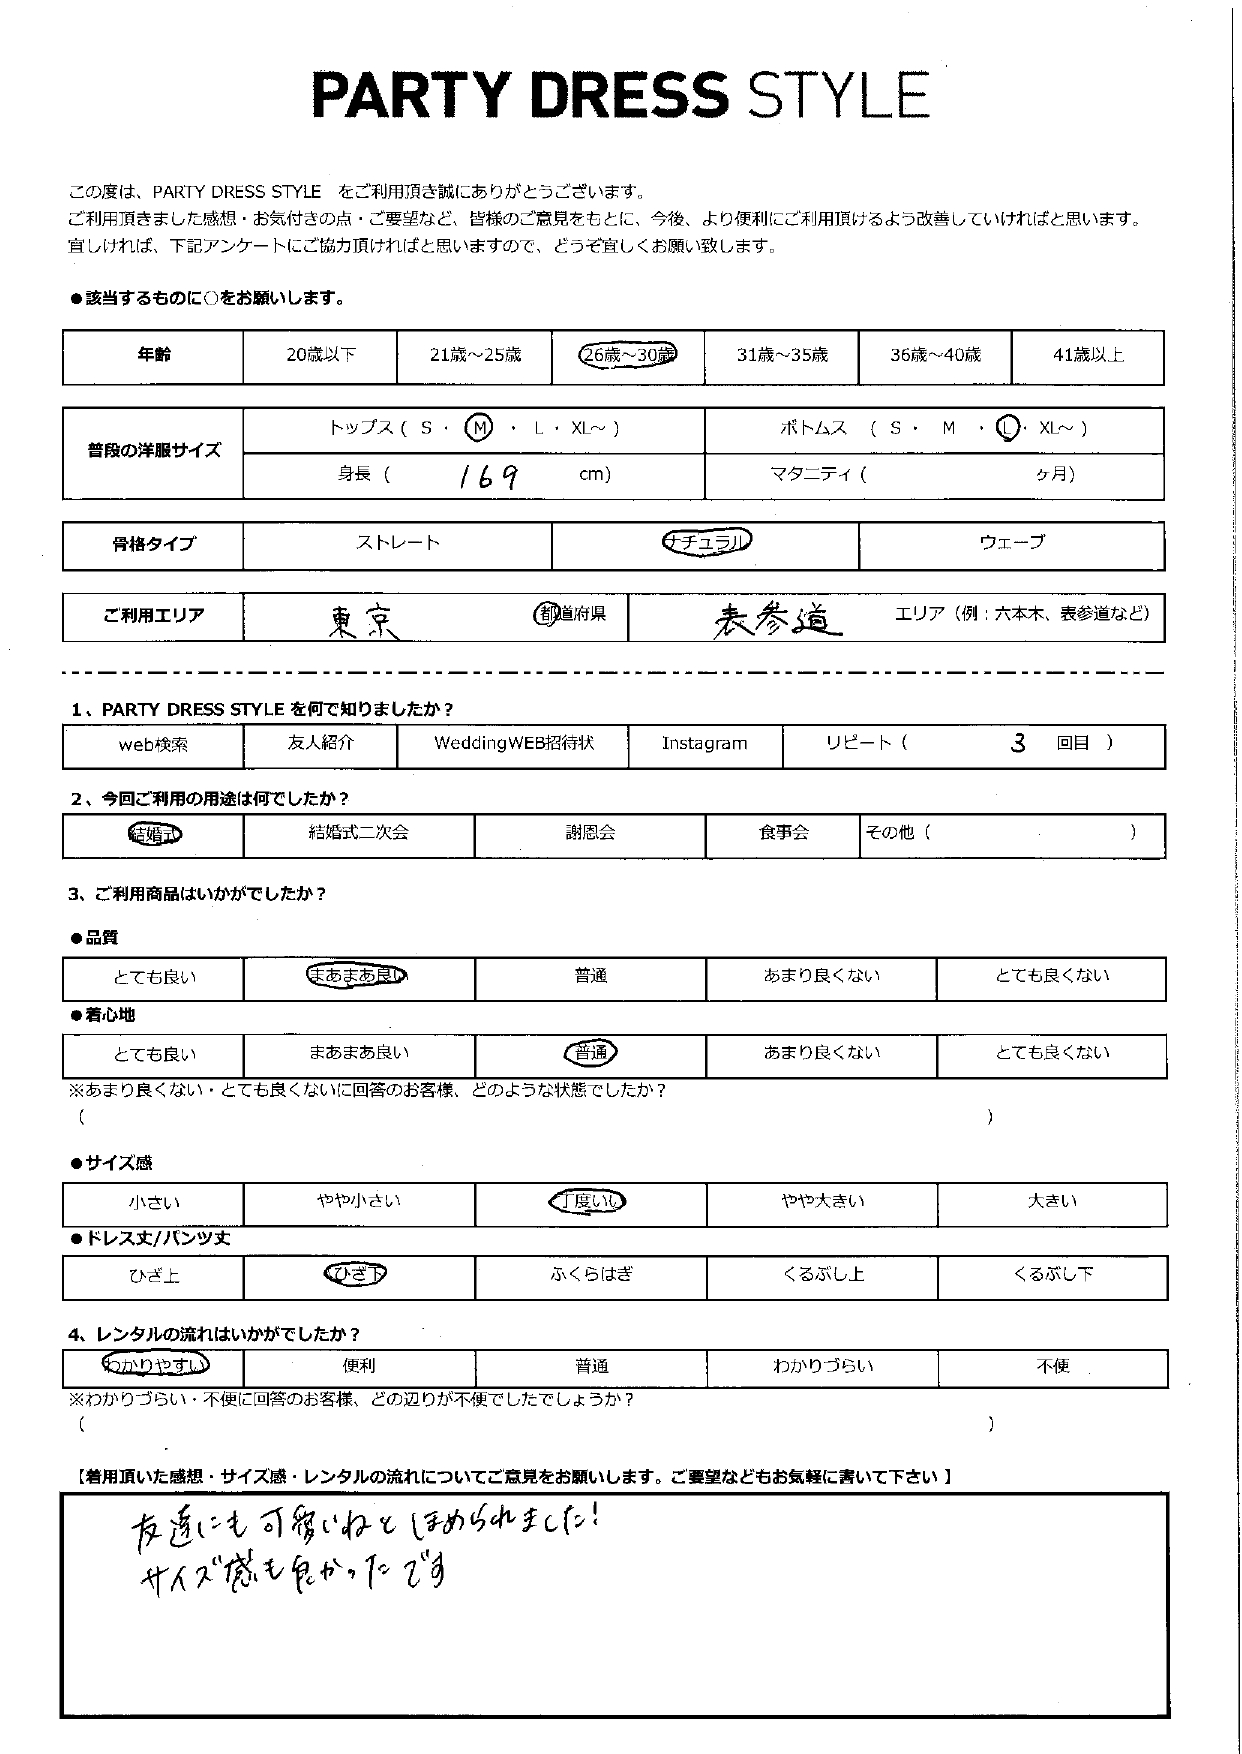 PARTY DRESS STYLE
この度は、PARTY DRESS STYLE をご利用頂き誠にありがとうございます。
ご利用頂きました感想・お気付きの点・ご要望など、皆様のご意見をもとに、今後、より便利にご利用頂けるよう改善していければと思います。
宜しければ、下記アンケートにご協力頂ければと思いますので、どうぞ宜しくお願い致します。
●該当するものに○をお願いします。
年齢 20歳以下 21歳～25歳 26歳～30歳 31歳～35歳 36歳～40歳 41歳以上
普段の洋服サイズ トップス ( S ・ M ・ L ・ XL～ ) ボトムス ( S ・ M ・ L ・ XL～ )
身長 ( 169 cm) マタニティ ( ヶ月)
骨格タイプ ストレート ナチュラル ウェーブ
ご利用エリア 東京 都道府県 表参道 エリア（例：六本木、表参道など）
1、PARTY DRESS STYLE を何で知りましたか？
web検索 友人紹介 WeddingWEB招待状 Instagram リピート ( 3 回目 )
2、今回ご利用の用途は何でしたか？
結婚式 結婚式二次会 謝恩会 食事会 その他 ( )
3、ご利用商品はいかがでしたか？
●品質
とても良い まあまあ良い 普通 あまり良くない とても良くない
●着心地
とても良い まあまあ良い 普通 あまり良くない とても良くない
※あまり良くない・とても良くないに回答のお客様、どのような状態でしたか？
( )
●サイズ感
小さい やや小さい 丁度いい やや大きい 大きい
●ドレス丈/パンツ丈
ひざ上 ひざ下 ふくらはぎ くるぶし上 くるぶし下
4、レンタルの流れはいかがでしたか？
わかりやすい 便利 普通 わかりづらい 不便
※わかりづらい・不便に回答のお客様、どの辺りが不便でしたでしょうか？
( )
【着用頂いた感想・サイズ感・レンタルの流れについてご意見をお願いします。ご要望などもお気軽に書いて下さい】
友達にも可愛いねとほめられました！
サイズ感も良かったです